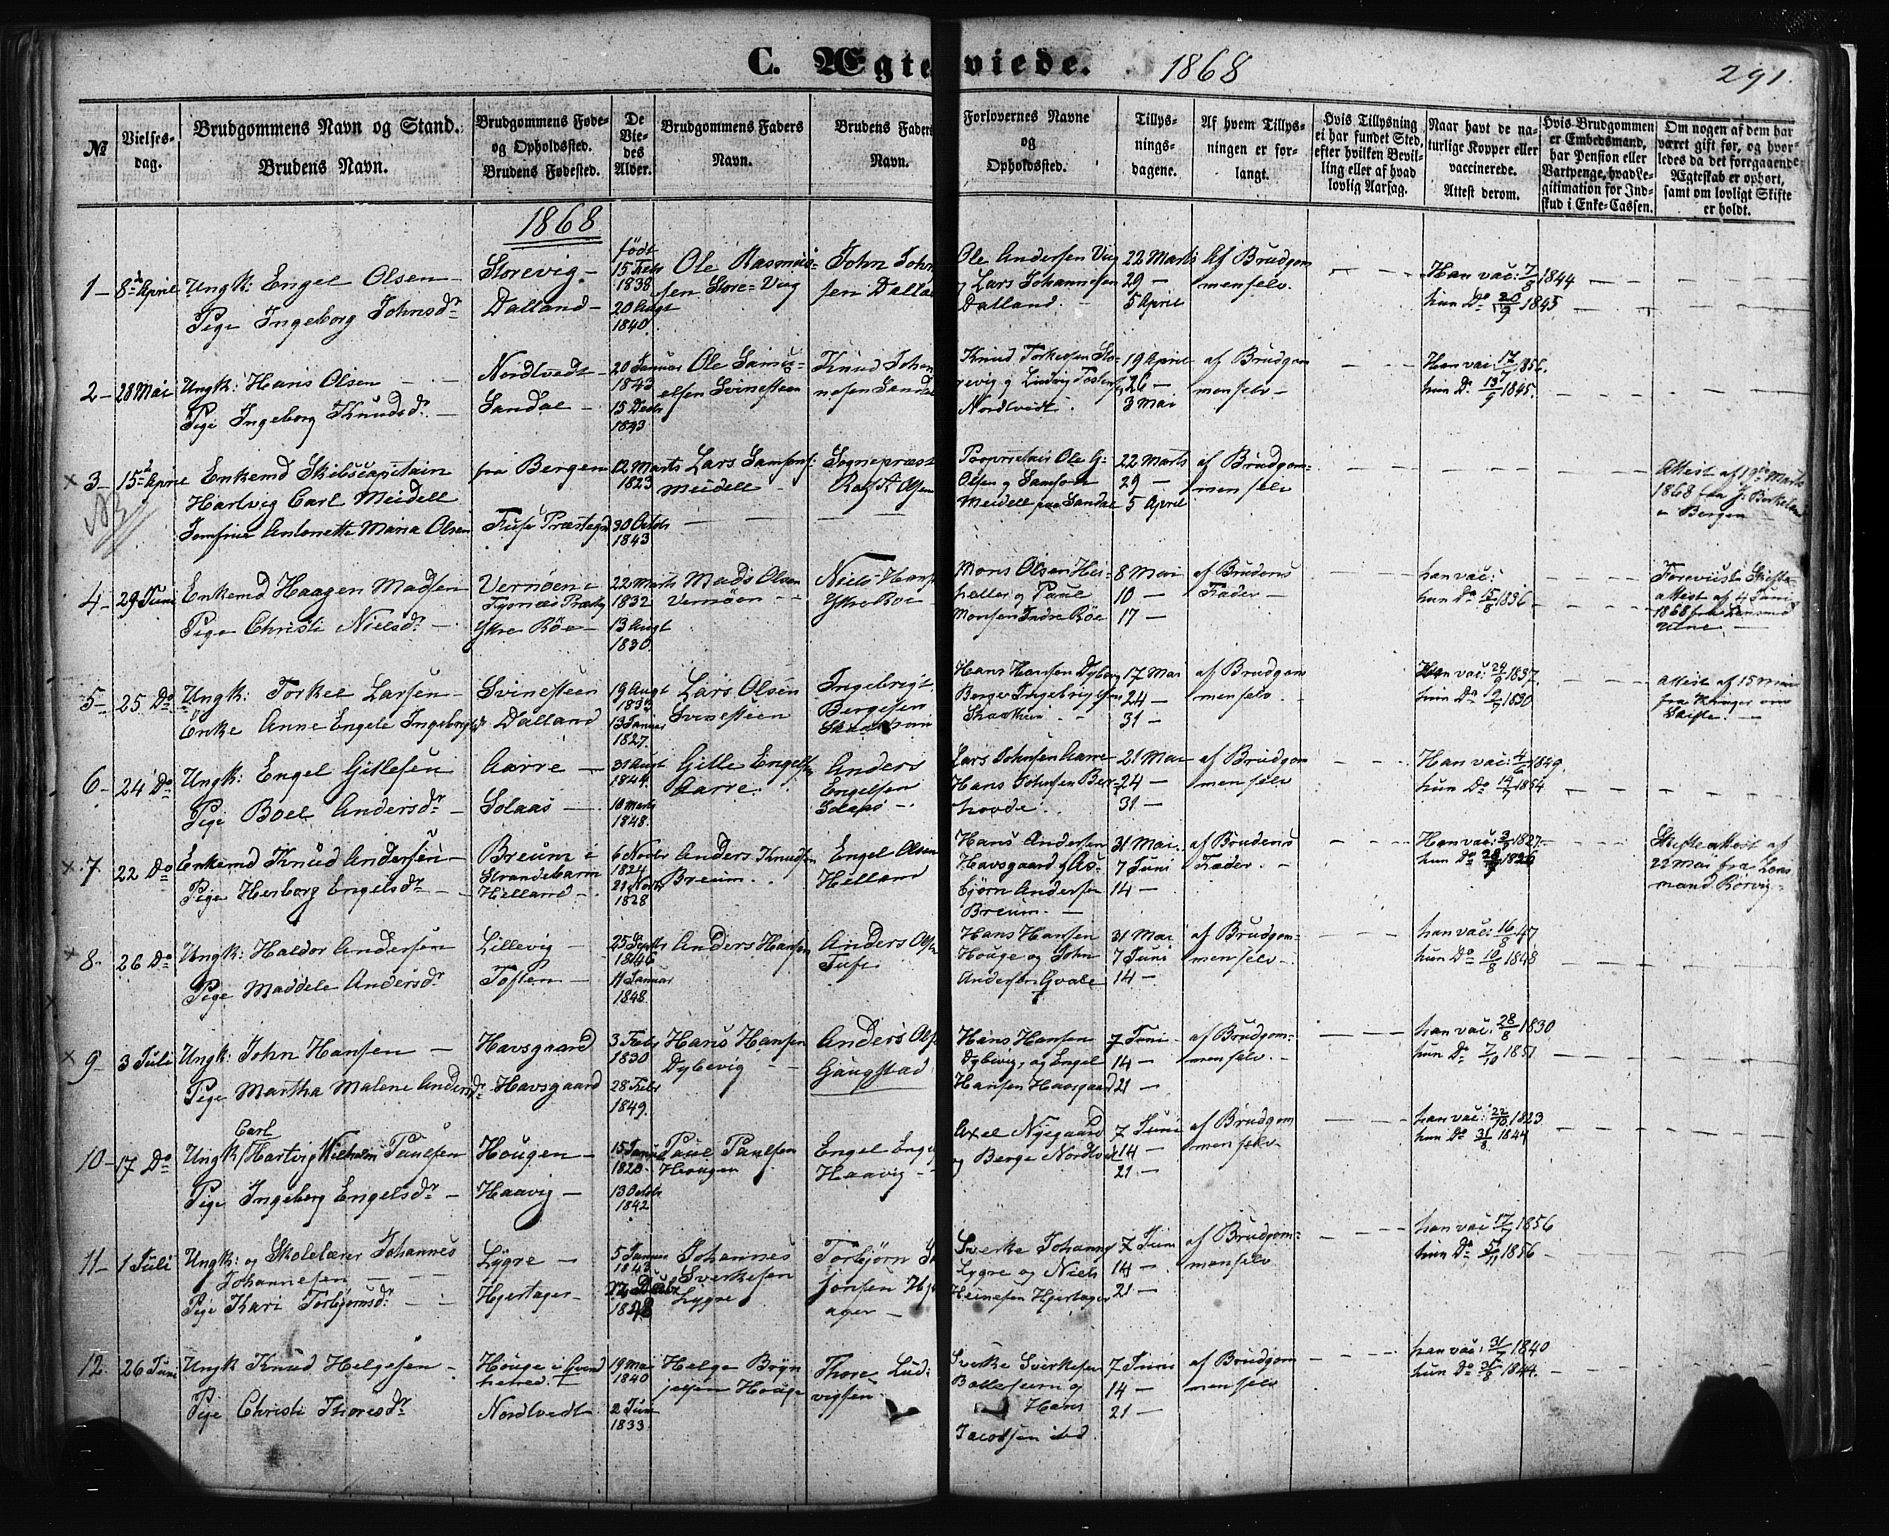 C. Ægteviede.
1868
291.
№
Vielses-
dag.
Brudgommens Navn og Stand.
Brudens Navn.
Brudgommens Føde-
og Opholdssted.
Brudens Fødested.
De
Vie-
des
Alder.
Brudgommens Faders
Navn.
Brudens Faders
Navn.
Forlovernes Navne
og
Opholdssted.
Tillys-
nings-
dagene.
Af hvem Tillys-
ningen er for-
langt.
Hvis Tillysning
ei har fundet Sted,
efter hvilken Bevil-
ling eller af hvad
lovlig Aarsag.
Naar havt de na-
turlige Kopper eller
vaccinerede.
Attest derom.
Hvis Brudgommen
er Embedsmand,
har Pension eller
Vartpenge, hvad Le-
gitimation for Ind-
skud i Enke-Cassen.
Om nogen af dem har
været gift før, og hvor-
ledes da det foregaaende
Ægteskab er ophørt,
samt om lovligt Skifte
er holdt.
1868
1 – 8de April
Ungk: Engel Olsen –
Pige Ingeborg Johnsdr
Storevig –
Dalland –
født
15 Febr
1838
20 Augt
1840
Ole Rasmus-
sen Store-Vaag
John John
sen Dalland
Ole Andersen Vaag
og Lars Johannesen
Dalland. –
22 Marts
29 –
5 April
Af Brudgom
men selv.
Han vac: 7/8 1844
hun Do 20/9 1845
2 – 28 Mai
Ungk: Hans Olsen – –
Pige Ingeborg Knudsdr –
Nordtvedt –
Sandal –
20 Januar
1843
15 Decb
1843
Ole Samu-
elsen Svinesteen
Knud Johan
nesen Sendal
Knud Torkelsen Sto-
revig og Ludvig Tostens
Nordtvedt.
19 April
26 –
3 Mai
af Brudgom
men selv –
Han vac: 17/7 1856.
hun Do 13/9 1845.
× 3 – 15de April
Enkemd Skibscapitain
Hartvig Carl Meidell
Jomfrue Antonette Maria Olsen
fra Bergen
Fuse Præstegd
12 Marts
1823
30 Octob
1843
Lars Samson
Meidell –
Sognepræst
Olsen
Proprietair Ole G.
Olsen og Samson
Meidell paa Sandal
22 Marts
29 –
5 April
af Brudgom-
men selv
Attest af 19de Marts
1868 fra
i Bergen
4 – 29 Juni
Enkemd Haagen Madsen
Pige Christi Nielsdr –
Vernøen i
Tysnæs Præstg
Ytre Røe –
22 Marts
1832
13 Augt
1830
Mads Olsen
Vernøen – –
Niels Hans
Ytre Roe –
Mons Olsen
og Poul
Monsen Indre Røe
8 Mai
10 –
17 –
af Brudens
Fader –
han vac:
hun Do 15/8 1836
Foreviist Skifte
attest af 4 Juni
1868 fra Lensmd
5 – 25 Do
Ungk: Torkel Larsen –
Enke Anne Engele Ingebrigtsdr
Svinesteen
Dalland
19 Augt
1833
13 Januar
1827.
Lars Olsen
Svinesteen
Ingebrigt
Bergesen
Hans Hansen Dybevig
Berge Ingebrigtsen
17 Mai
24 –
31 –
af Brudgom
men selv.
Han vac: 29/9 1837.
hun Do 1830
Attest af 15 Mai
fra Krüger om
Skifte. –
6 – 24 Do
Ungk: Engel Gittesen
Pige Boel Andersdr
Aarre –
Solaas –
31 Augt
1844
10 Marts
1848.
Gitle Engelsen
Aarre.
Anders
Engelsen
Solaas –
Lars Johnsen Aarre
Hans Johnsen Ber-
hovde.
21 Mai
24 –
31 –
af Brudgom
men selv.
Han vac: 4/6 1849.
hun Do 14/7 1854
× 7 – 22 Do
Enkemd Knud Andersen –
Pige Herborg Engelsdr –
Breum i
Strandebarm
Helland –
6 Novbr
1824
21 Novb
1828
Anders Knudsen
Breum.
Engel Olsen
Helland
Hans Andersen
Havsgaard og As-
bjørn Andersen
Breum. –
31 Mai.
7 Juni
14 –
af Brudens
Fader. –
Han vac: 3/7 1827 –
hun Do 1826
Skifteattest af
22 Mai fra Lens
mand Rørvig –
× 8 – 26 Do
Ungk: Haldor Andersen
Pige Maddele Andersdr
Lillevig –
Toften –
25 Septb
1846
11 Januar
1848.
Anders Hansen
Anders Ols
Tufte
Hans Hansen
Houge og John
Andersen Qvale
31 Mai
7 Juni
14 –
af Brudgom-
men selv –
han vac: 16/8 47
hun Do 10/8 1848
× 9 – 3 Juli
Ungk: John Hansen –
Pige Martha Malene Andersdr
Havsgaard
Havsgaard
3 Febr
1830
28 Febr
1849.
Hans Hansen
Dybevig –
Anders Ols
Gaugstad
Hans Hansen
Dybevig, og Engel
Hansen Havsgaard
7 Juni
14 –
21 –
af Brudgom-
men selv. –
han vac: 28/8 1830
hun Do 7/10 1851
10 – 17 Do
Carl
Ungk: Hartvig Wilhelm Paulsen
Pige Ingeborg Engelsdr –
Hougen –
Haavig –
15 Januar
1820
13 Octob
1842
Paul Paulsen
Hougen
Engel Eng
Haavig –
Axel Nygaard
og Berge Nordtvedt
7 Juni
14 –
21 –
af Brudgom
men selv.
han vac: 22/10 1823
hun Do 31/8 1844
11 – 1 Juli
Ungk: og Skolelærer Johannes
Johannesen – –
Pige Kari Torbjørnsdr –
Lygre –
Hjertager –
5 Januar
1843
Johannes
Sverkesen
Lygre
Torbjørn
Sverke Johanns
Lygre og Niels
Heinesen Hjertager
7 Juni
14 –
21 –
af Brudgom-
men selv
han vac 17/7 1856
hun Do 1856
12. 26 Juni
Ungk Knud Helgesen –
Pige Christi Thoresdr
Houge i Qvind
hered –
Nordtvedt
19 Mai
1840
2 Juni
1833
Helge Bryn
jelsen Houge
Thore Lud-
vigsen
Sverke Sverkesen
Bollesum og
Hans
Jacobsen ibd.
7 Juni
14 –
21 –
af Brudgom
men selv
han vac: 31/7 1840
hun Do 31/8 1844.